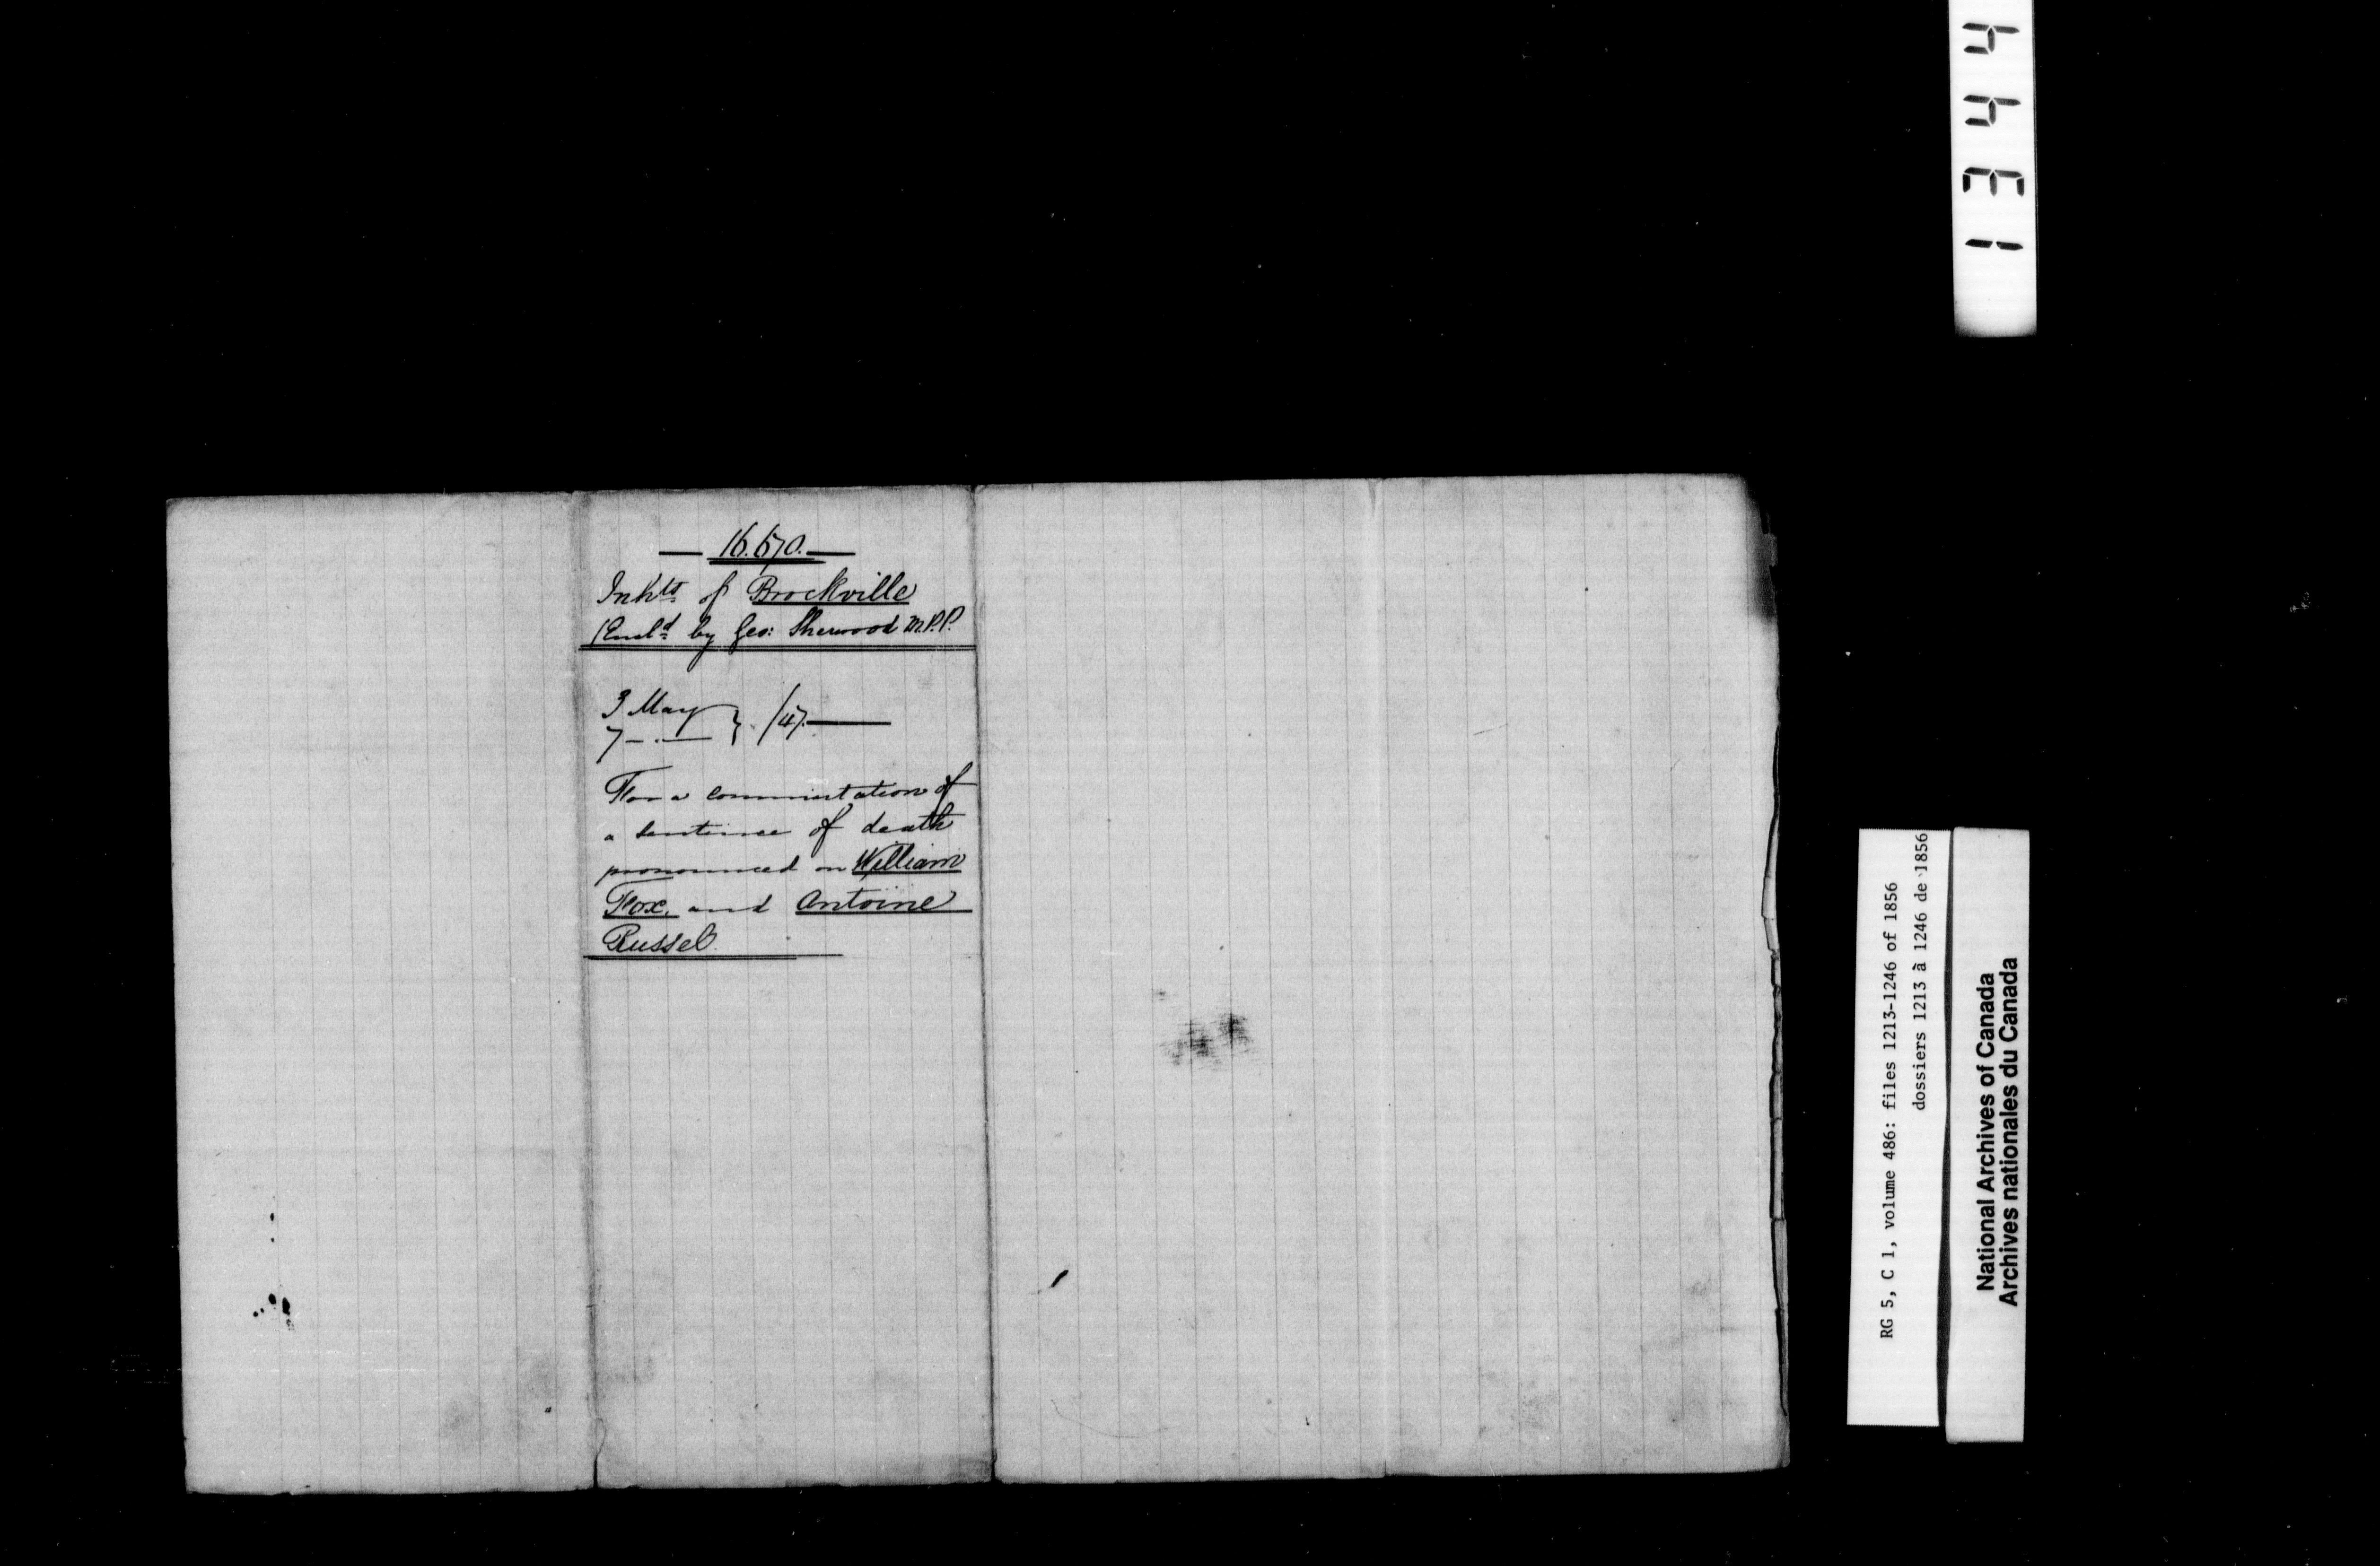 — 16.670. —
Inhts of Brockville
(Encld by Geo: Sherwood M.P.P.
3 May } /47. —
7 — . —
For a commutation of
a sentence of death
pronounced on William
Fox, and Antoine
Russel.
1344
RG 5, C 1, volume 486: files 1213-1246 of 1856
dossiers 1213 à 1246 de 1856
National Archives of Canada
Archives nationales du Canada